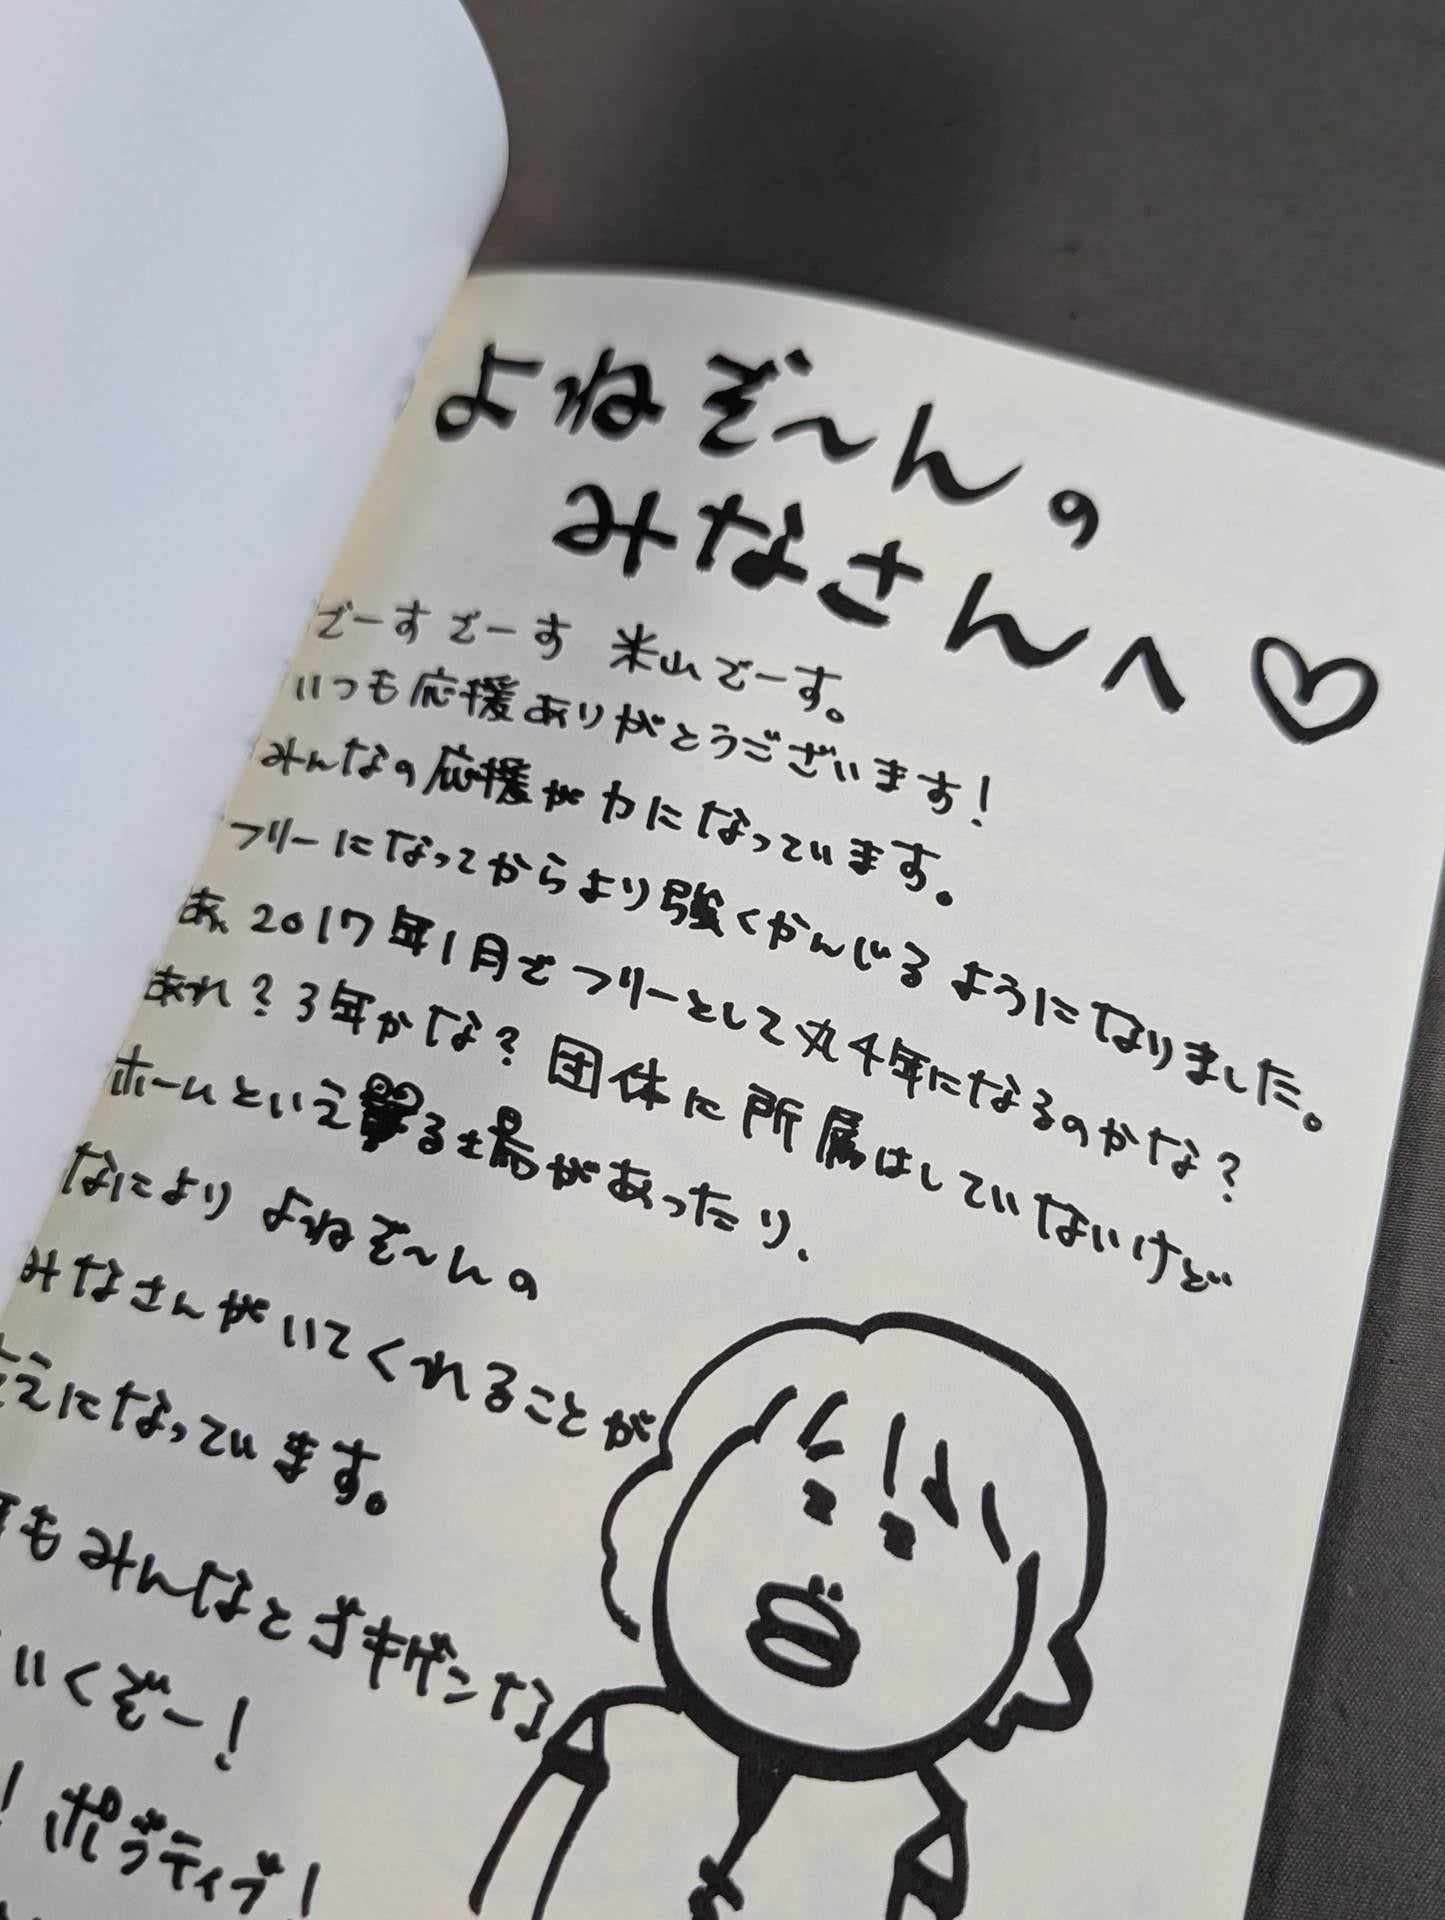 よねぞ〜んの
みなさんへ♡
でーすでーす 米山でーす。
いつも応援ありがとうございます!
みんなの応援が力になっています。
フリーになってからより強くかんじるようになりました。
あ、2017年1月でフリーとして丸4年になるのかな?
あれ?3年かな?団体に所属はしていないけど
ホームといえる場があったり、
なによりよねぞ〜んの
みなさんがいてくれることが
支えになっています。
もみんなとごきげんな
いくぞー!
!ポジティブ!